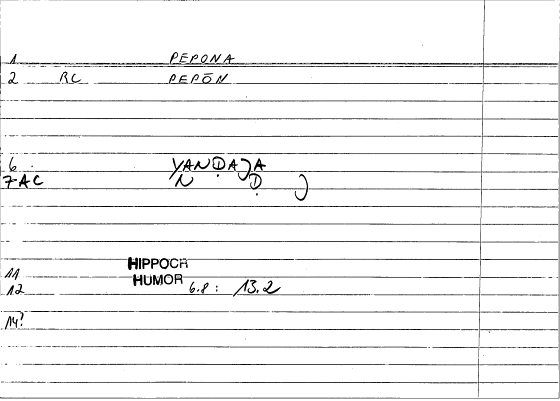 1 PEPONA
2 RC PEPŌN
6 YANḌAJA
7 AC N Ḍ J
11 HIPPOCR
12 HUMOR 6.8 : 13.2
14?